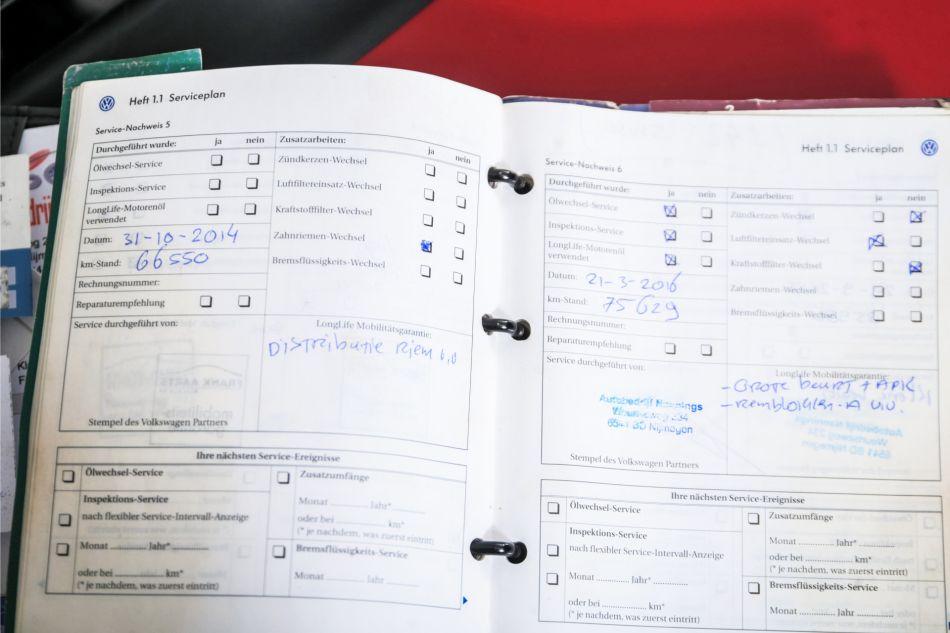 Heft 1.1 Serviceplan
Service-Nachweis 5
Durchgeführt wurde: ja nein
Ölwechsel-Service
Inspektions-Service
LongLife-Motorenöl
verwendet
Datum: 31-10-2014
km-Stand: 66550
Rechnungsnummer:
Reparaturempfehlung
Zusatzarbeiten: ja nein
Zündkerzen-Wechsel
Luftfiltereinsatz-Wechsel
Kraftstofffilter-Wechsel
Zahnriemen-Wechsel
Bremsflüssigkeits-Wechsel
Service durchgeführt von:
Stempel des Volkswagen Partners
LongLife Mobilitätsgarantie:
Distributie Riem
Ihre nächsten Service-Ereignisse
Ölwechsel-Service
Inspektions-Service
nach flexibler Service-Intervall-Anzeige
Monat ............ Jahr* ............
oder bei ............ km*
(* je nachdem, was zuerst eintritt)
Zusatzumfänge
Monat ............ Jahr* ............
oder bei ............ km*
(* je nachdem, was zuerst eintritt)
Bremsflüssigkeits-Service
Monat ............ Jahr ............
Heft 1.1 Serviceplan
Service-Nachweis 6
Durchgeführt wurde: ja nein
Ölwechsel-Service
Inspektions-Service
LongLife-Motorenöl
verwendet
Datum: 21-3-2016
km-Stand: 75629
Rechnungsnummer:
Reparaturempfehlung
Zusatzarbeiten: ja nein
Zündkerzen-Wechsel
Luftfiltereinsatz-Wechsel
Kraftstofffilter-Wechsel
Zahnriemen-Wechsel
Bremsflüssigkeits-Wechsel
Service durchgeführt von:
6541 BD Nijmegen
Stempel des Volkswagen Partners
LongLife Mobilitätsgarantie:
- Grote beurt + APK
- Remblokken
Ihre nächsten Service-Ereignisse
Ölwechsel-Service
Inspektions-Service
nach flexibler Service-Intervall-Anzeige
Monat ............ Jahr* ............
oder bei ............ km*
(* je nachdem, was zuerst eintritt)
Zusatzumfänge
Monat ............ Jahr* ............
oder bei ............ km*
(* je nachdem, was zuerst eintritt)
Bremsflüssigkeits-Service
Monat ............ Jahr ............